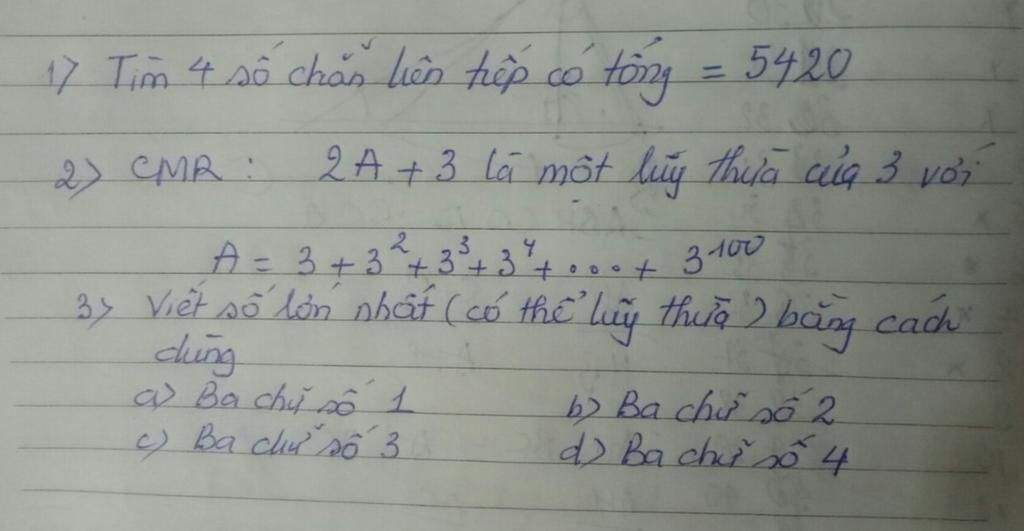 1) Tìm 4 số chẵn liên tiếp có tổng = 5420
2) CMR : 2A + 3 là một lũy thừa của 3 với
A = 3 + 3² + 3³ + 3⁴ + .... + 3¹⁰⁰
3) Viết số lớn nhất (có thể lũy thừa) bằng cách
dùng
a) Ba chữ số 1 b) Ba chữ số 2
c) Ba chữ số 3 d) Ba chữ số 4